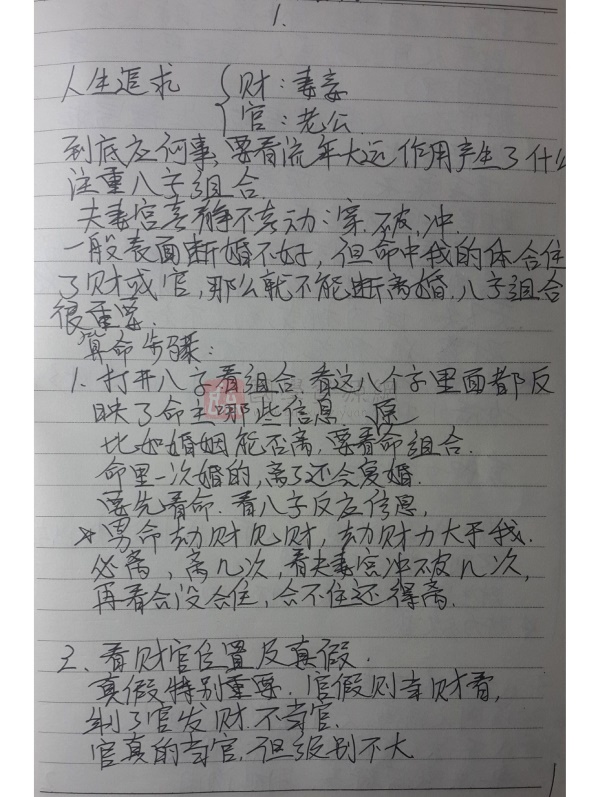 1.
人生追求 { 财：妻妾
官：老公
到底应何事,要看流年大运作用产生了什么
注重八字组合.
夫妻宫喜静不喜动：穿.破.冲.
一般表面断婚不好,但命中我的体合住
了财或官,那么就不能断离婚.八字组合
很重要.
算命步骤：
1.打开八字看组合.看这八个字里面都反
映了命主哪些信息 原
比如婚姻能否离,要看命组合.
命里一次婚的,离了还会复婚.
要先看命.看八字反应信息,
*男命劫财见财,劫财力大于我.
必离,离几次,看夫妻宫冲破几次,
再看合没合住,合不住还得离.
2、看财官位置及真假.
真假特别重要.官假则幸财看,
制了官发财.不当官.
官真的当官,但级别不大